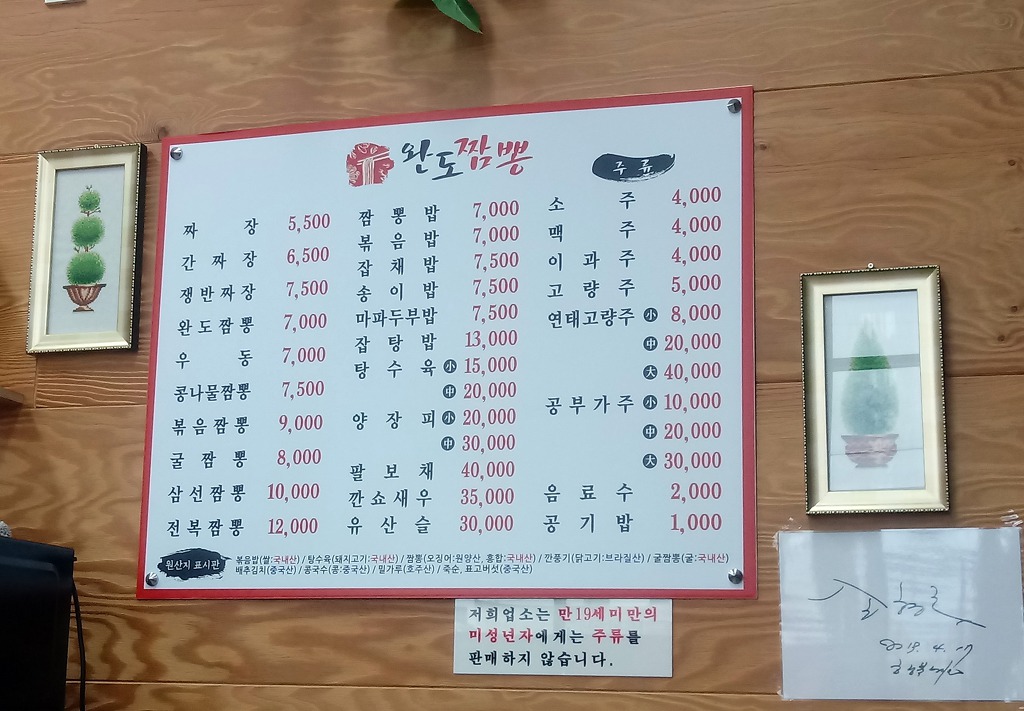 완도짬뽕
짜장 5,500
간짜장 6,500
쟁반짜장 7,500
완도짬뽕 7,000
우동 7,000
콩나물짬뽕 7,500
볶음짬뽕 9,000
굴짬뽕 8,000
삼선짬뽕 10,000
전복짬뽕 12,000
짬뽕밥 7,000
볶음밥 7,000
잡채밥 7,500
송이밥 7,500
마파두부밥 7,500
잡탕밥 13,000
탕수육 小 15,000
中 20,000
양장피 小 20,000
中 30,000
팔보채 40,000
깐쇼새우 35,000
유산슬 30,000
주류
소주 4,000
맥주 4,000
이과주 4,000
고량주 5,000
연태고량주 小 8,000
中 20,000
大 40,000
공부가주 小 10,000
中 20,000
大 30,000
음료수 2,000
공기밥 1,000
원산지 표시판
볶음밥(쌀:국내산) / 탕수육(돼지고기:국내산) / 짬뽕(오징어:원양산, 홍합:국내산) / 깐풍기(닭고기:브라질산) / 굴짬뽕(굴:국내산)
배추김치(중국산) / 콩국수(콩:중국산) / 밀가루(호주산) / 죽순, 표고버섯(중국산)
저희업소는 만19세미만의
미성년자에게는 주류를
판매하지 않습니다.